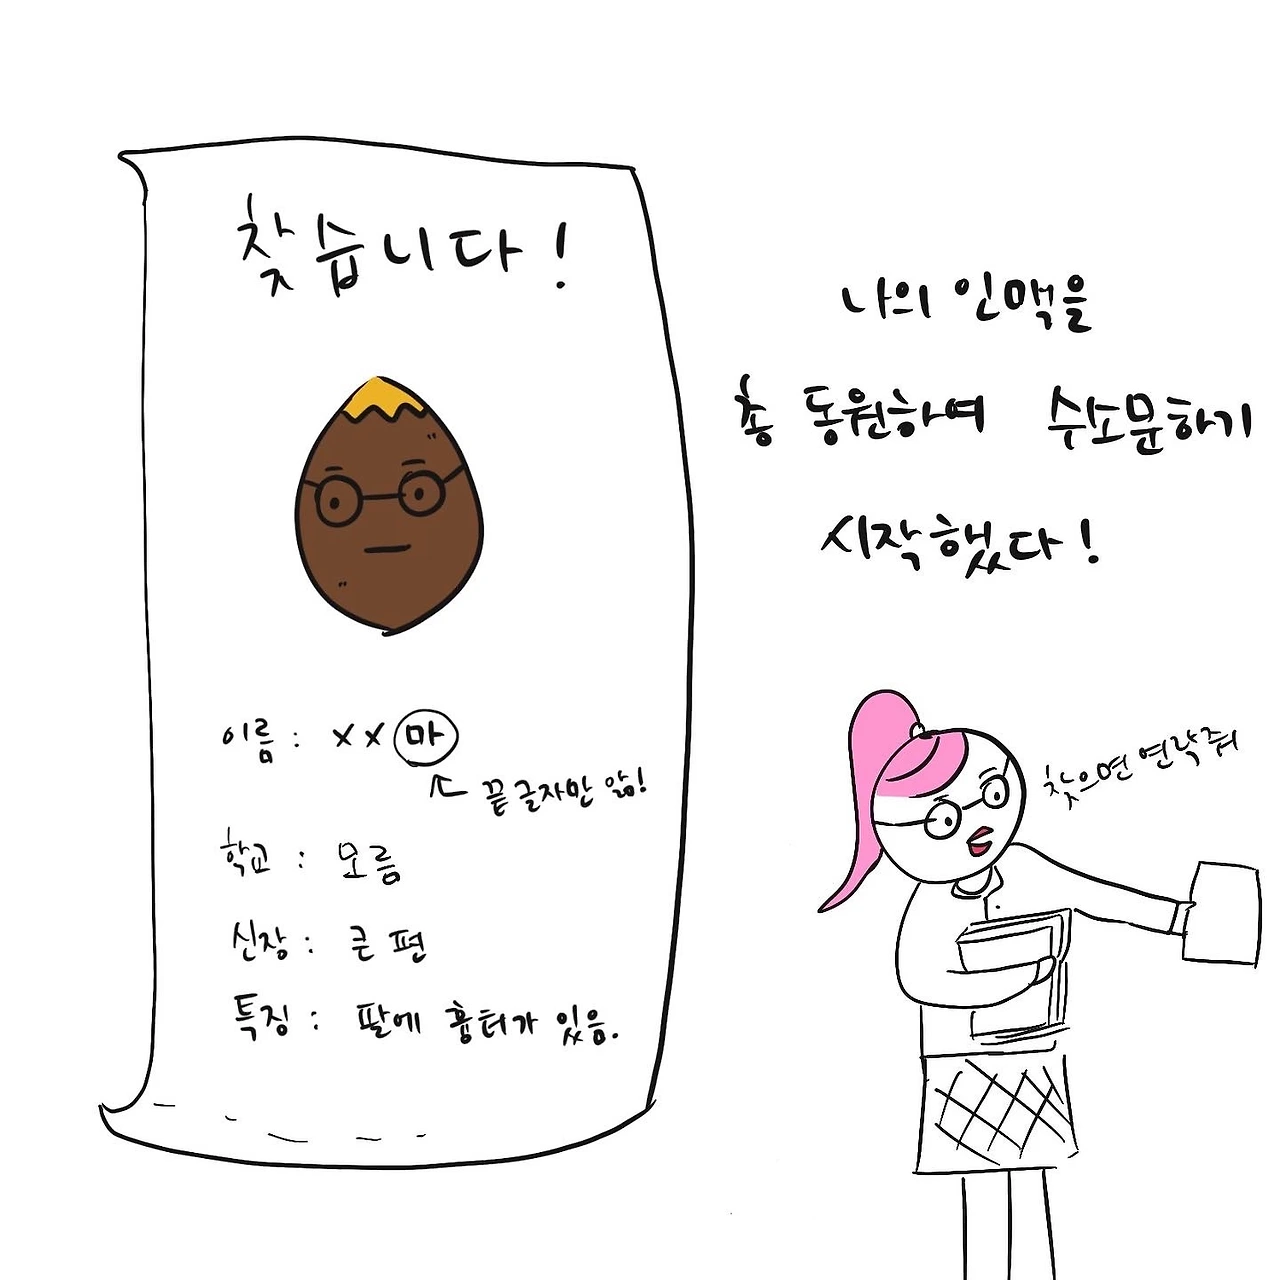 찾습니다!
이름 : XX마
끝글자만 앎!
학교 : 모름
신장 : 큰 편
특징 : 팔에 흉터가 있음.
나의 인맥을
총 동원하여 수소문하기
시작했다!
찾으면 연락줘